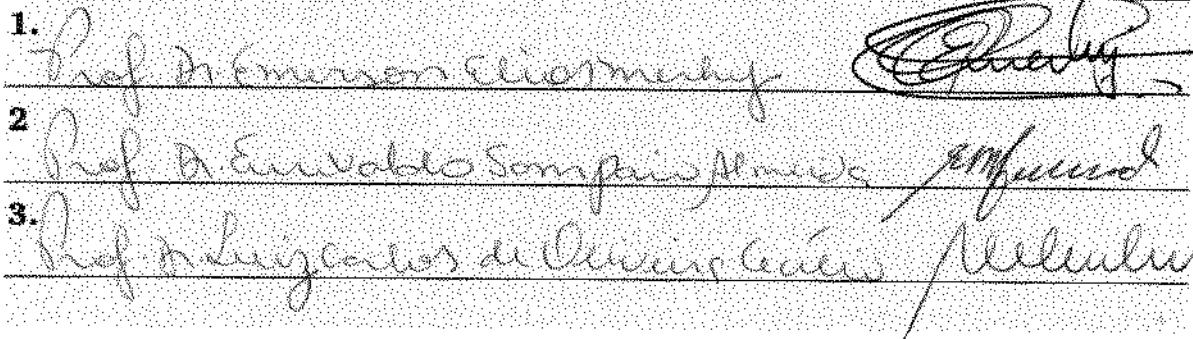 1.
Prof. Dr. Emerson Elias Merhy
2
Prof. Dr. Eurivaldo Sampaio Almeida
3.
Prof. Dr. Luiz Carlos de Oliveira Cecílio